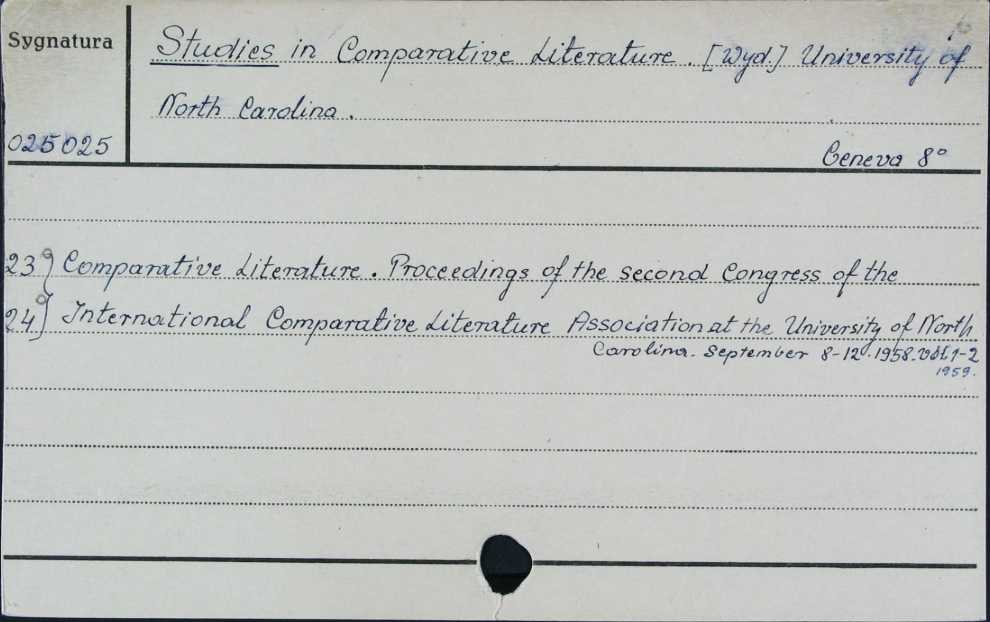 Sygnatura
Studies in Comparative Literature. [Wyd.] University of
North Carolina.
025025
Geneva 8°
23 Comparative Literature. Proceedings of the second Congress of the
24 International Comparative Literature Association at the University of North
Carolina. September 8-12. 1958. vol. 1-2
1959.